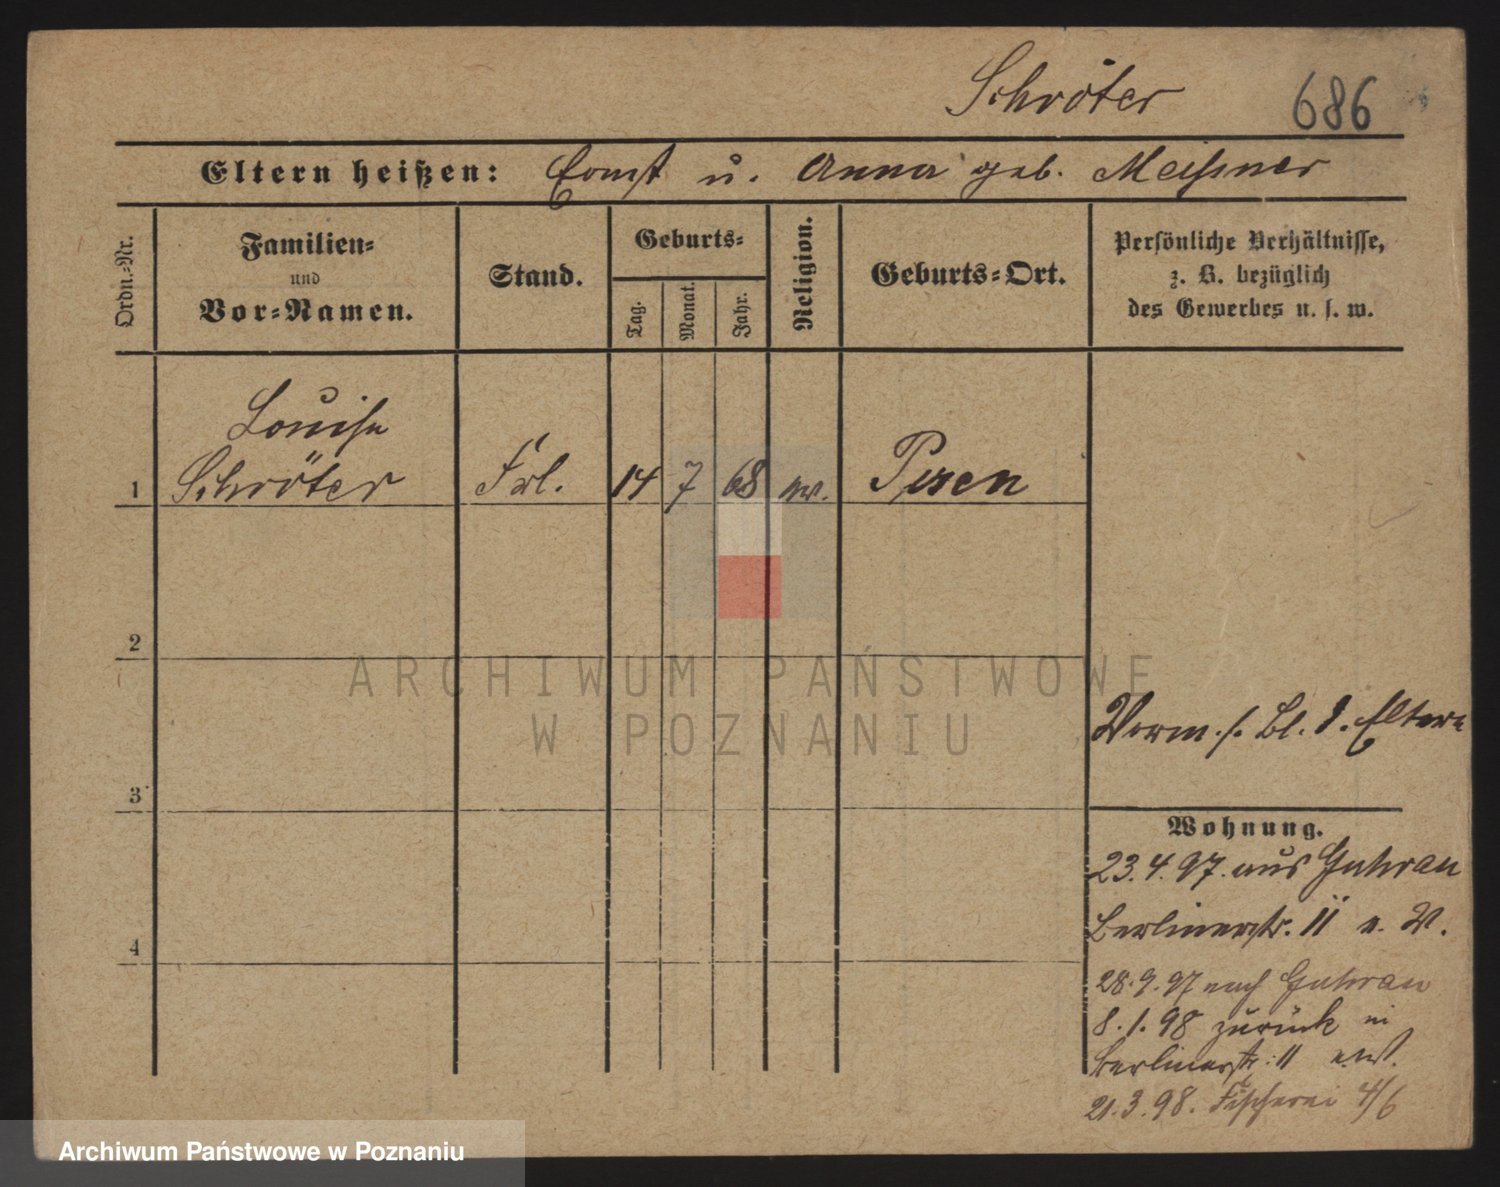 Schröter 686
Eltern heißen: Ernst u. Anna geb. Meißner
Ordn.=Nr.
Familien=
und
Vor=Namen.
Stand.
Geburts=
Tag.
Monat.
Jahr.
Religion.
Geburts=Ort.
Persönliche Verhältnisse,
z. B. bezüglich
des Gewerbes u. s. w.
Louise
1 Schröter Frl. 14 7 68 ev. Posen
2
3
4
Vorm. s. Bl. d. Eltern
Wohnung.
23.4.97. aus Guhrau
Berlinerstr. 11 b. V.
28.9.97 nach Guhrau
8.1.98 zurück in
Berlinerstr. 11
21.3.98. Fischerei 4/6
ARCHIWUM PAŃSTWOWE
W POZNANIU
Archiwum Państwowe w Poznaniu